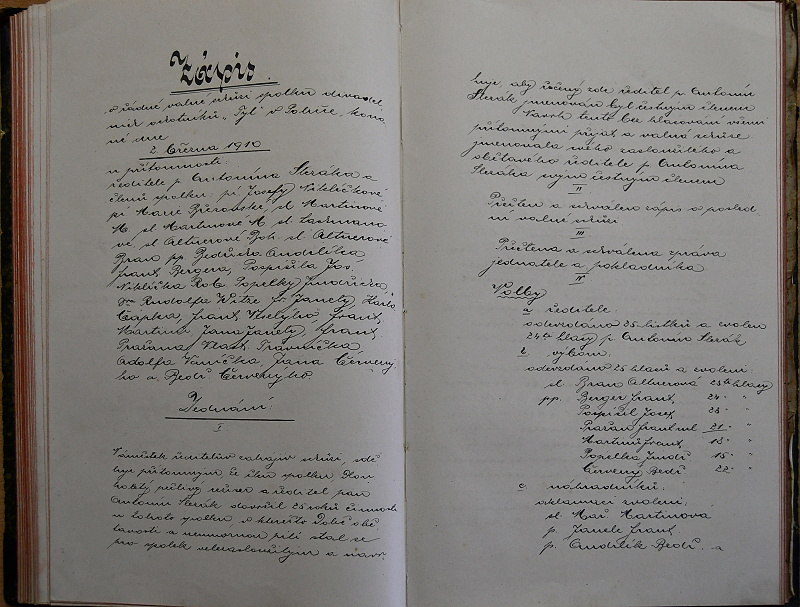 Zápis
o řádné valné schůzi spolku divadel.
ních ochotníků „Tyl" v Poličce, kona-
né dne
2. března 1910
u přítomnosti:
ředitele p. Antonína Sležáka a
členů spolku: pí Josefy Nikličkové
pí Marie Břízovské, sl. Martinové
M. sl. Martinové M. sl.
vé sl. Altnerové Boh. sl. Altnerové
Bran. pp. Bedřicha Andrlíka
Frant. Bergera, Pospíšila Jos.
Niklička Rob. Popelky Jindřicha,
Dra Rudolfa Witze Fr. Janety, Karla
Čápka, Frant. Veselýho, Frant.
Martinů, Jana Janety, Frant.
Pražana, Vlast. Travníčka
Adolfa Vaníčka, Jana Červený.
ho a Bedř. Červenýho.
Jednání:
I
Náměstek ředitelův zahajuje schůzi, sdě-
luje přítomným, že člen spolku,
pilný režisér a ředitel pan
Antonín Sležák dovršil 25 roků činnosti
u tohoto spolku, v kteréžto době obě-
tavostí a neúmornou pílí stal se
pro spolek velezasloužilým a navr-
huje, aby řečený zde ředitel p. Antonín
Sležák jmenován byl čestným členem
Návrh tento bez hlasování všemi
přítomnými přijat a valná schůze
jmenovala svého zasloužilého a
obětavého ředitele p. Antonína
Sležáka svým čestným členem
II
Přečten a schválen zápis o posled-
ní valné schůzi
III
Přečtena a schválena zpráva
jednatele a pokladníka
IV
Volby
a. ředitele:
odevzdáno 25 lístků a zvolen
24mi hlasy p. Antonín Sležák
b. výboru,
odevzdáno 25 hlasů a zvoleni:
sl. Bran. Altnerová 25ti hlasy
pp. Berger Frant. 24 " "
Pospíšil Josef 23 " "
Pražan Frant. ml. 21 " "
Martinů Frant. 18 " "
Popelka Jindř. 15 " "
Červený Bedř. 22 " "
c. náhradníků:
aklamací zvoleni:
sl. Mař. Martinová
p. Janele Frant.
p. Andrlík Bedř. a